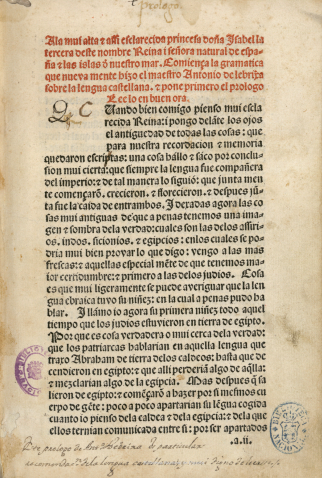 prologo.
Ala mui alta ⁊ assi esclarecida princesa doña Isabel la
tercera deste nombre Reina i señora natural de espa-
ña ⁊ las islas ð nuestro mar. Comiença la gramatica
que nueva mente hizo el maestro Antonio de lebrixa
sobre la lengua castellana. ⁊ pone primero el prologo
Lee lo en buen ora.
C Uando bien comigo pienso mui escla
recida Reina: i pongo delāte los ojos
el antiguedad de todas las cosas: que
para nuestra recordacion ⁊ memoria
quedaron escriptas: una cosa hállo ⁊ sáco por: conclu-
sion mui cierta: que siempre la lengua fue compañera
del imperio: ⁊ de tal manera lo siguió: que junta men
te començarō. crecieron. ⁊ florecieron. ⁊ despues jū
ta fue la caida de entrambos. I dexadas agora las co
sas mui antiguas de que a penas tenemos una ima-
gen ⁊ sombra dela verdad: cuales son las delos assiri
os. indos. sicionios. ⁊ egipcios: enlos cuales se po-
dria mui bien provar lo que digo: vengo a las mas
frescas: ⁊ aquellas especial mēte de que tenemos ma-
ior certidumbre: ⁊ primero a las delos judios. Cosa
es que mui ligeramente se puede averiguar que la len
gua ebraica tuvo su niñez: en la cual a penas pudo ha
blar. I llámo io agora su primera niñez todo aquel
tiempo que los judios estuvieron en tierra de egipto.
Por que es cosa verdadera o mui cerca dela verdad:
que los patriarcas hablarian en aquella lengua que
traxo Abraham de tierra delos caldeos: hasta que de
cendieron en egipto: ⁊ que alli perderiā algo de aq̄lla:
⁊ mezclarian algo dela egipcia. Mas despues q̄ sa
lieron de egipto: ⁊ començarō a hazer por si mesmos cu
erpo de gēte: poco a poco apartarian su lēgua cogida
cuanto io pienso dela caldea ⁊ dela egipcia: ⁊ dela que
ellos ternian comunicada entre si: por ser apartados
.a.ii.